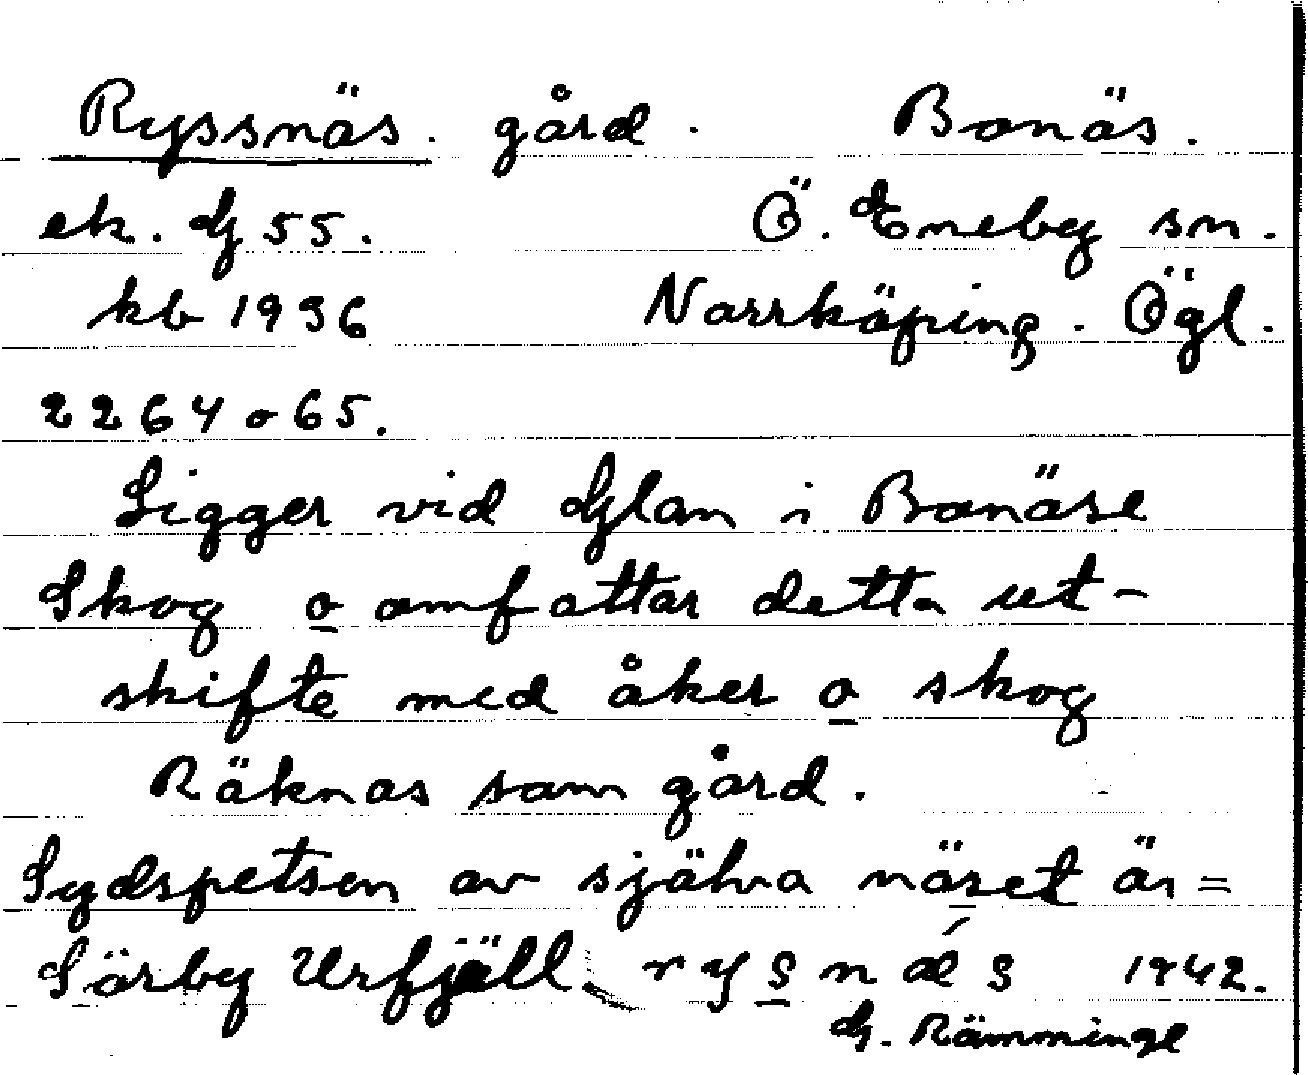 Ryssnäs. gård. Bonäs.
ek. G 55. Ö. Eneby sn.
kb 1936 Norrköping. Ögl.
2264 o 65.
Ligger vid Glan i Bonäse
Skog o omfattar detta ut-
skifte med åker o skog
Räknas som gård.
Sydspetsen av själva näset är =
Sörby Urfjäll. rysnǽs 1942.
G. Rämminge